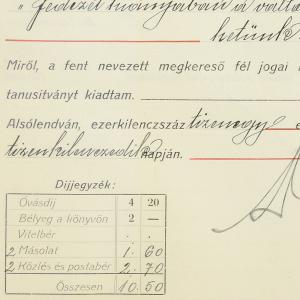 „fedezet hiányában a váltó
hetünk.
Miről, a fent nevezett megkereső fél jogai
tanusítványt kiadtam.
Alsólendván, ezerkilenczszáz tizenegy
tizenkilenczedik napján.
Díjjegyzék:
Óvásdíj 4 20
Bélyeg a könyvön 2 —
Vitelbér . .
2 Másolat 1. 60
2 Közlés és postabér 2. 70
Összesen 10. 50